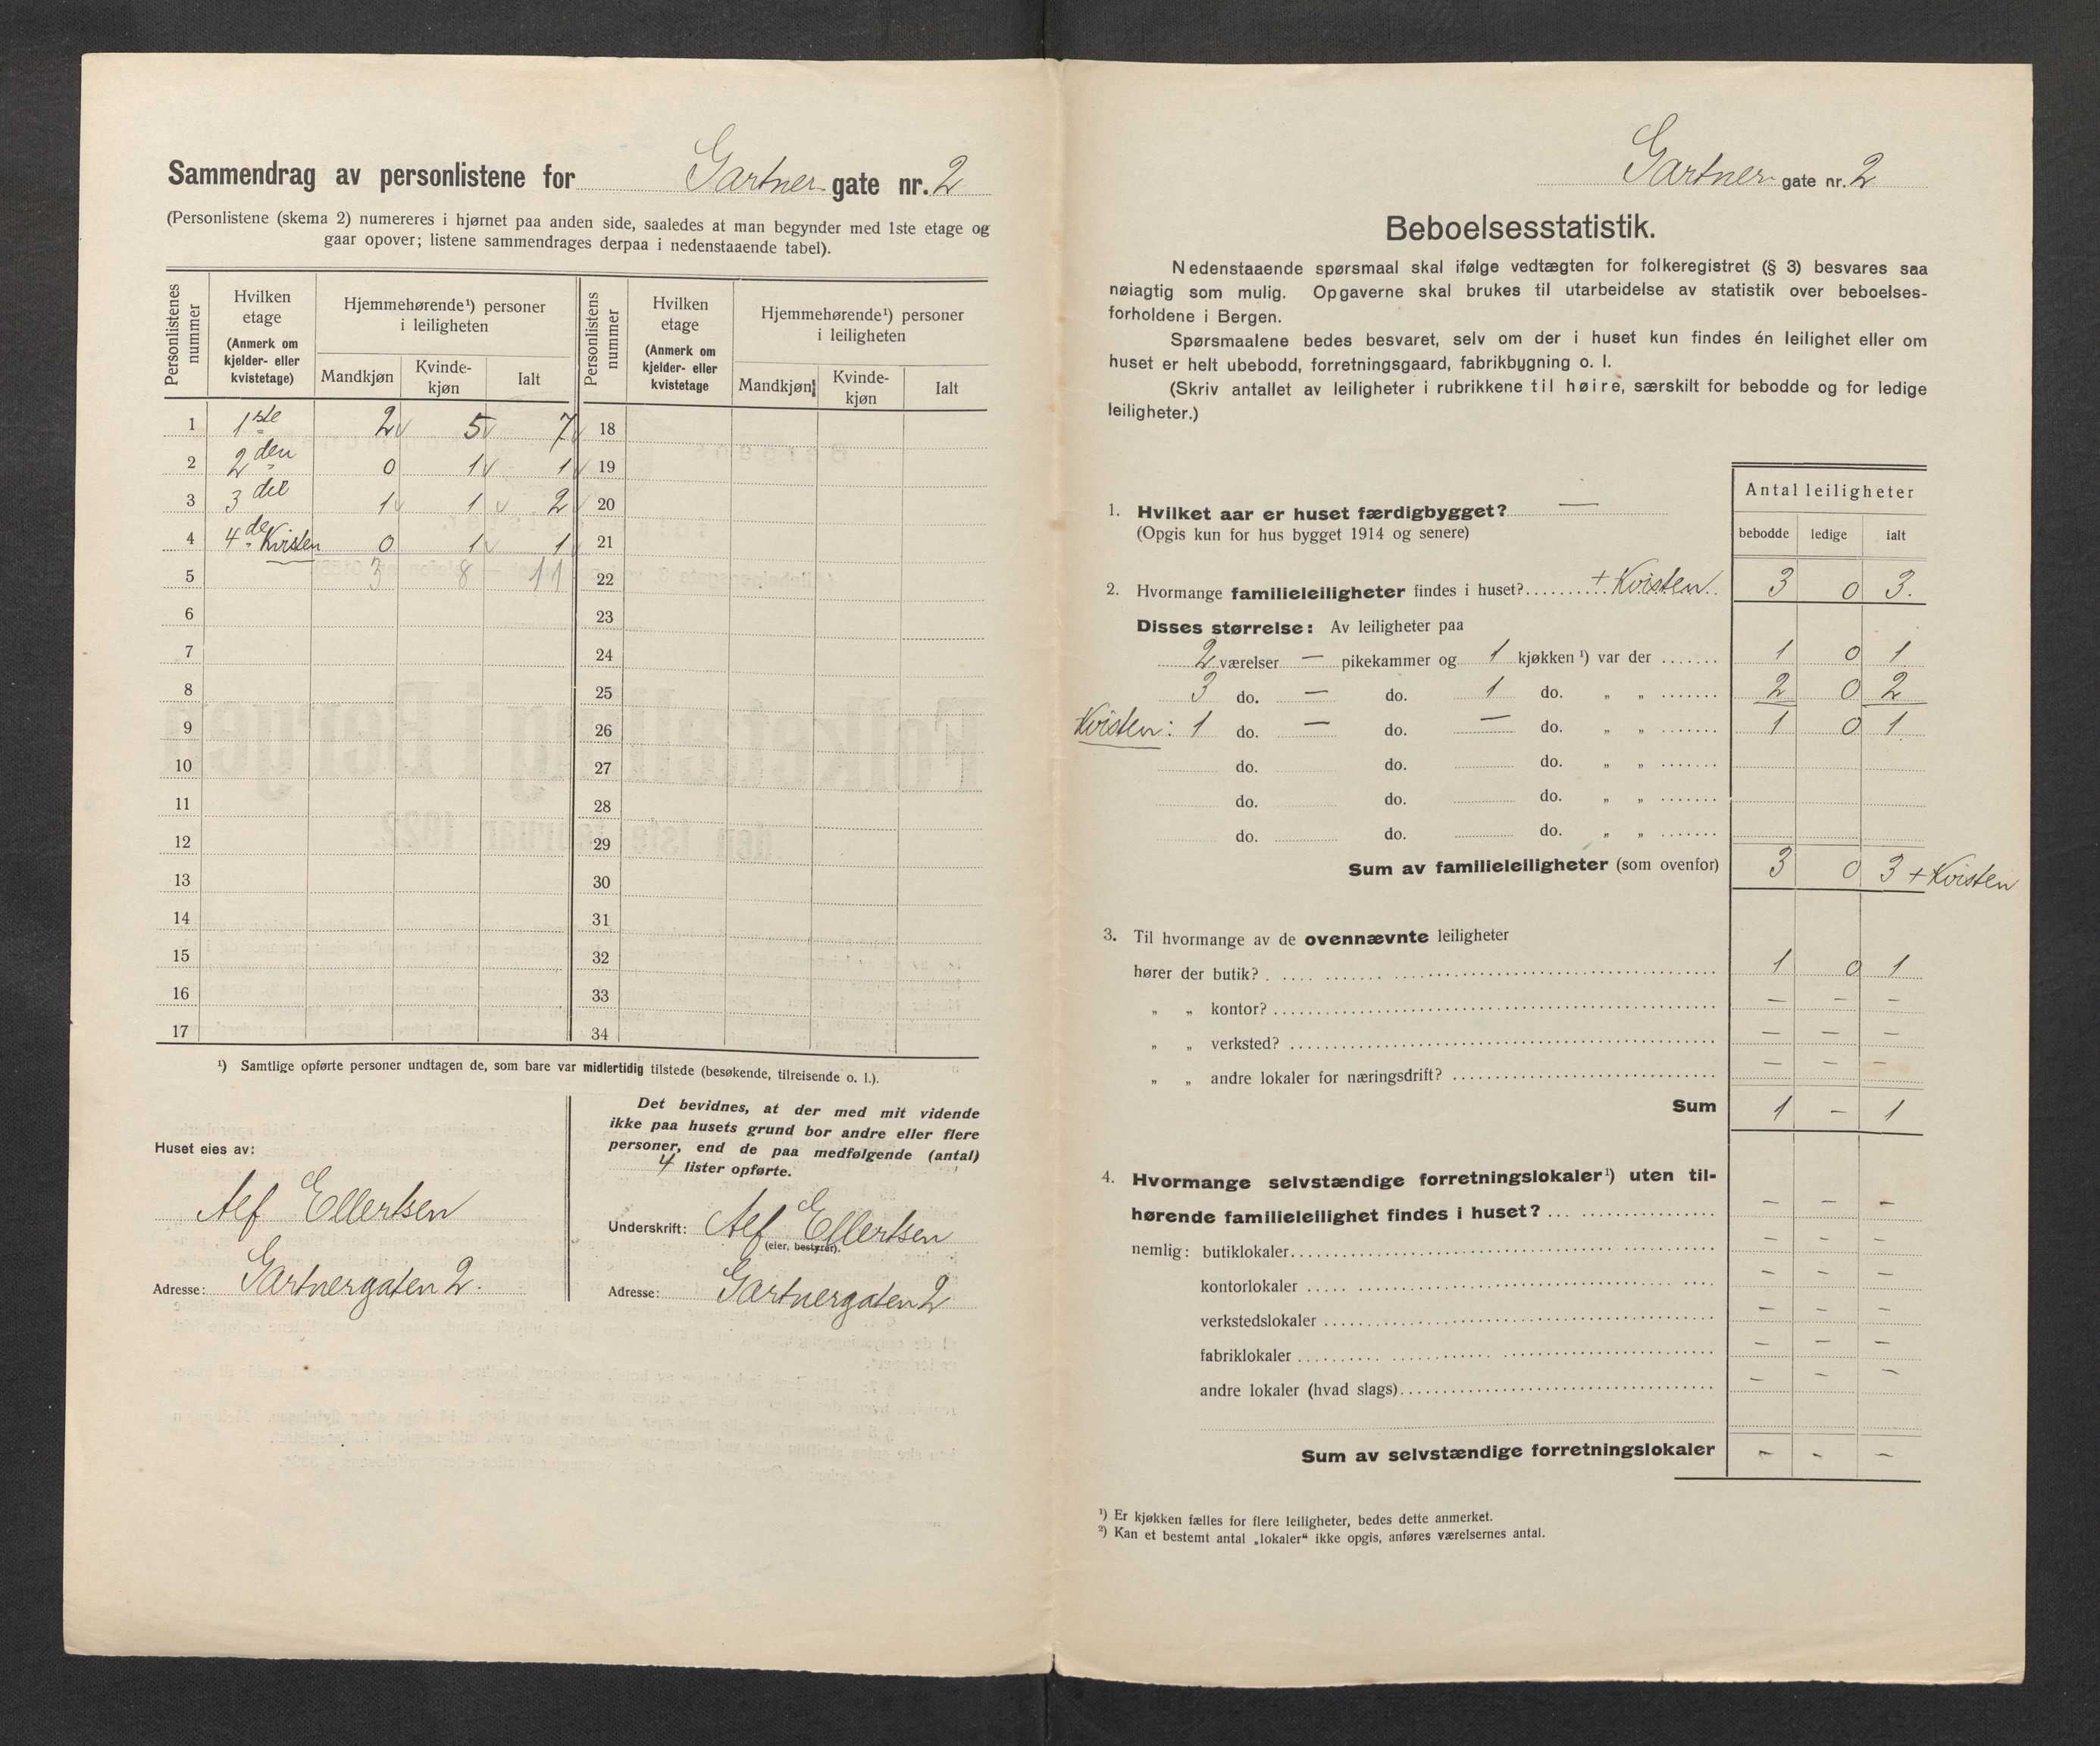 Sammendrag av personlistene for Gartner gate nr. 2
(Personlistene (skema 2) numereres i hjørnet paa anden side, saaledes at man begynder med 1ste etage og
gaar opover; listene sammendrages derpaa i nedenstaaende tabel).
Personlistenes nummer | Hvilken etage (Anmerk om kjelder- eller kvistetage) | Hjemmehørende¹) personer i leiligheten | Personlistens nummer | Hvilken etage (Anmerk om kjelder- eller kvistetage | Hjemmehørende¹) personer i leiligheten
Mandkjøn | Kvinde-kjøn | Ialt | Mandkjøn | Kvinde-kjøn | Ialt
1 1ste 2 5 7 18
2 2den 0 1 1 19
3 3die 1 1 2 20
4 4de Kvisten 0 1 1 21
5 3 8 11 22
6 23
7 24
8 25
9 26
10 27
11 28
12 29
13 30
14 31
15 32
16 33
17 34
¹) Samtlige opførte personer undtagen de, som bare var midlertidig tilstede (besøkende, tilreisende o. l.).
Huset eies av:
Alf Ellertsen
Adresse: Gartnergaten 2.
Det bevidnes, at der med mit vidende
ikke paa husets grund bor andre eller flere
personer, end de paa medfølgende (antal)
4 lister opførte.
Underskrift: Alf Ellertsen
(eier, bestyrer).
Adresse: Gartnergaten 2
Gartner gate nr. 2
Beboelsesstatistik.
Nedenstaaende spørsmaal skal ifølge vedtægten for folkeregistret (§ 3) besvares saa
nøiagtig som mulig. Opgaverne skal brukes til utarbeidelse av statistik over beboelses-
forholdene i Bergen.
Spørsmaalene bedes besvaret, selv om der i huset kun findes én leilighet eller om
huset er helt ubebodd, forretningsgaard, fabrikbygning o. l.
(Skriv antallet av leiligheter i rubrikkene til høire, særskilt for bebodde og for ledige
leiligheter.)
Antal leiligheter
bebodde | ledige | ialt
1. Hvilket aar er huset færdigbygget? —
(Opgis kun for hus bygget 1914 og senere)
2. Hvormange familieleiligheter findes i huset? + Kvisten. 3 0 3.
Disses størrelse: Av leiligheter paa
2 værelser — pikekammer og 1 kjøkken ¹) var der ....... 1 0 1
3 do. — do. 1 do. „ „ ....... 2 0 2
Kvisten: 1 do. — do. — do. „ „ ....... 1 0 1
do. do. do. „ „ .......
do. do. do. „ „ .......
do. do. do. „ „ .......
Sum av familieleiligheter (som ovenfor) 3 0 3 + Kvisten
3. Til hvormange av de ovennævnte leiligheter
hører der butik? 1 0 1
„ „ kontor? — — —
„ „ verksted? — — —
„ „ andre lokaler for næringsdrift? — — —
Sum 1 — 1
4. Hvormange selvstændige forretningslokaler¹) uten til-
hørende familieleilighet findes i huset? — — —
nemlig: butiklokaler — — —
kontorlokaler — — —
verkstedslokaler — — —
fabriklokaler — — —
andre lokaler (hvad slags) — — —
Sum av selvstændige forretningslokaler — — —
¹) Er kjøkken fælles for flere leiligheter, bedes dette anmerket.
²) Kan et bestemt antal „lokaler“ ikke opgis, anføres værelsernes antal.